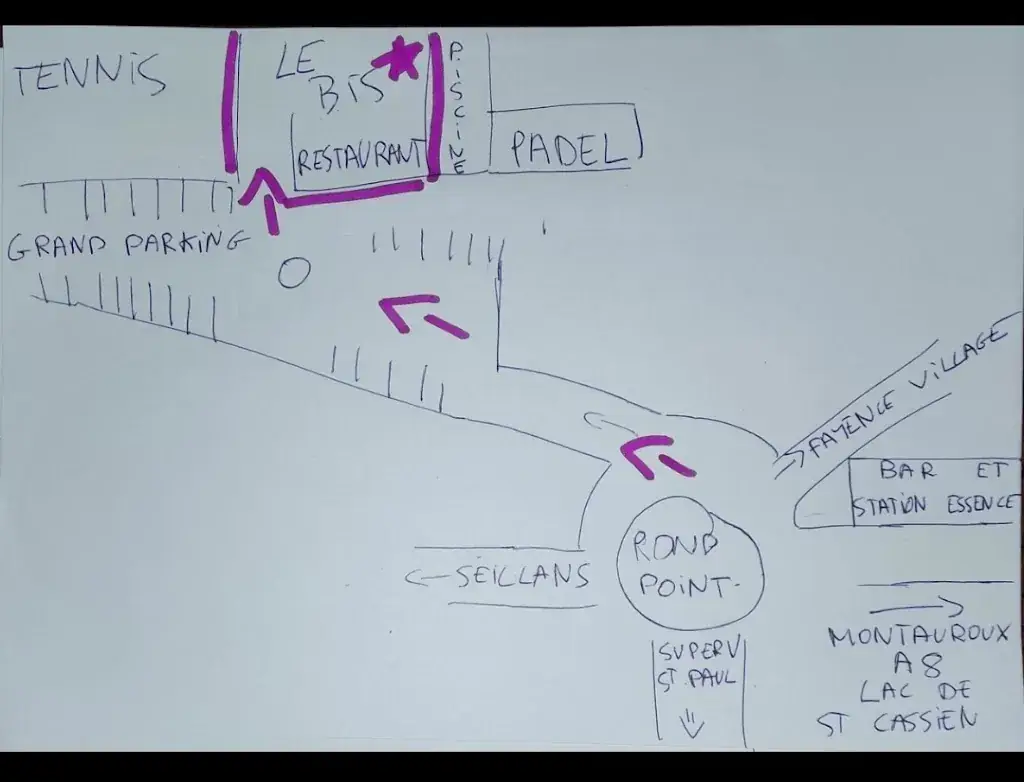 TENNIS
LE
BIS
PISCINE
RESTAURANT
PADEL
GRAND PARKING
FAYENCE VILLAGE
BAR ET
STATION ESSENCE
ROND
POINT
SEILLANS
SUPER U
ST PAUL
MONTAUROUX
A8
LAC DE
ST CASSIEN